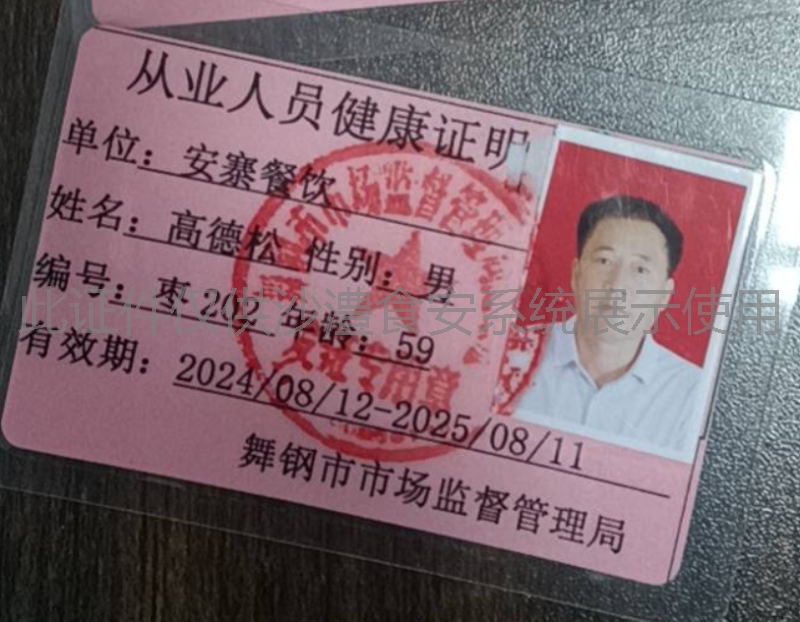 从业人员健康证明
单位：安寨餐饮
姓名：高德松 性别：男
编号：枣 202 年龄：59
有效期：2024/08/12-2025/08/11
舞钢市市场监督管理局
舞钢市市场监督管理
发证专用章
此证件仅供沙澧食安系统展示使用